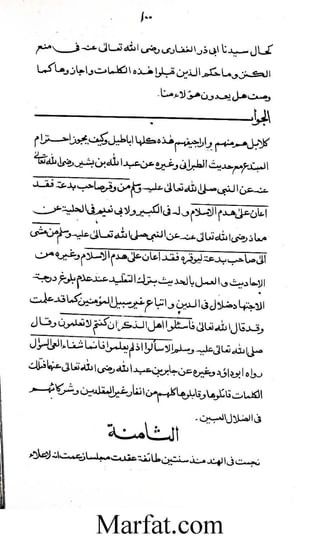 ١٠٠
كحال سيدنا ابى ذر الغفارى رضى الله تعالى عنه فى منع
الكنز وما حكم الذين قبلوا هذه الكلمات واجازوها كما
وصف هل يعدون هؤلاء منا.
الجواب
كلا بل هم منهم واراجيفهم هذه كلها اباطيل وكيف يجوز احترام
المبتدع مع حديث الطبرانى وغيره عن عبد الله بن بشير رضى الله تعالى
عنه عن النبى صلى الله تعالى عليه وسلم من وقر صاحب بدعة فقد
اعان على هدم الاسلام وله فى الكبير ولابى نعيم فى الحلية عن
معاذ رضى الله تعالى عنه عن النبى صلى الله تعالى عليه وسلم من مشى
الى صاحب بدعة ليوقره فقد اعان على هدم الاسلام وغيره من
الاحاديث والعمل بالحديث بترك التقليد عند عدم بلوغ درجة
الاجتهاد ضلال فى الدين واتباع غير سبيل المؤمنين كما قد علمت
وقد قال الله تعالى فاسئلوا اهل الذكر ان كنتم لا تعلمون وقال
صلى الله تعالى عليه وسلم الا سألوا اذ لم يعلموا فانما شفاء العى السؤال
رواه ابو داؤد وغيره عن جابر بن عبد الله رضى الله تعالى عنهما فتلك
الكلمات قائلوها وقابلوها كلهم من انفار غير المقلدين وشركائهم
فى الضلال المبين.
الثامنة
نجمت فى الهند منذ سنتين طائفة عقدت مجلسا زعمت انه لاعلاء
Marfat.com